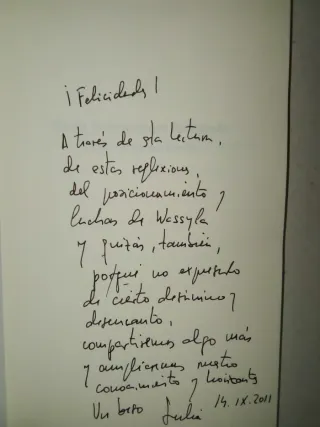 ¡Felicidades!
A través de sta lectura,
de estas reflexiones,
del posicionamiento y
luchas de Wassyla
y quizás, también,
porqué no expuesto
de cierto desánimo y
desencanto,
compartiremos algo más
y ampliaremos nuestro
conocimiento y horizontes
Un beso Julia 14.IX.2011